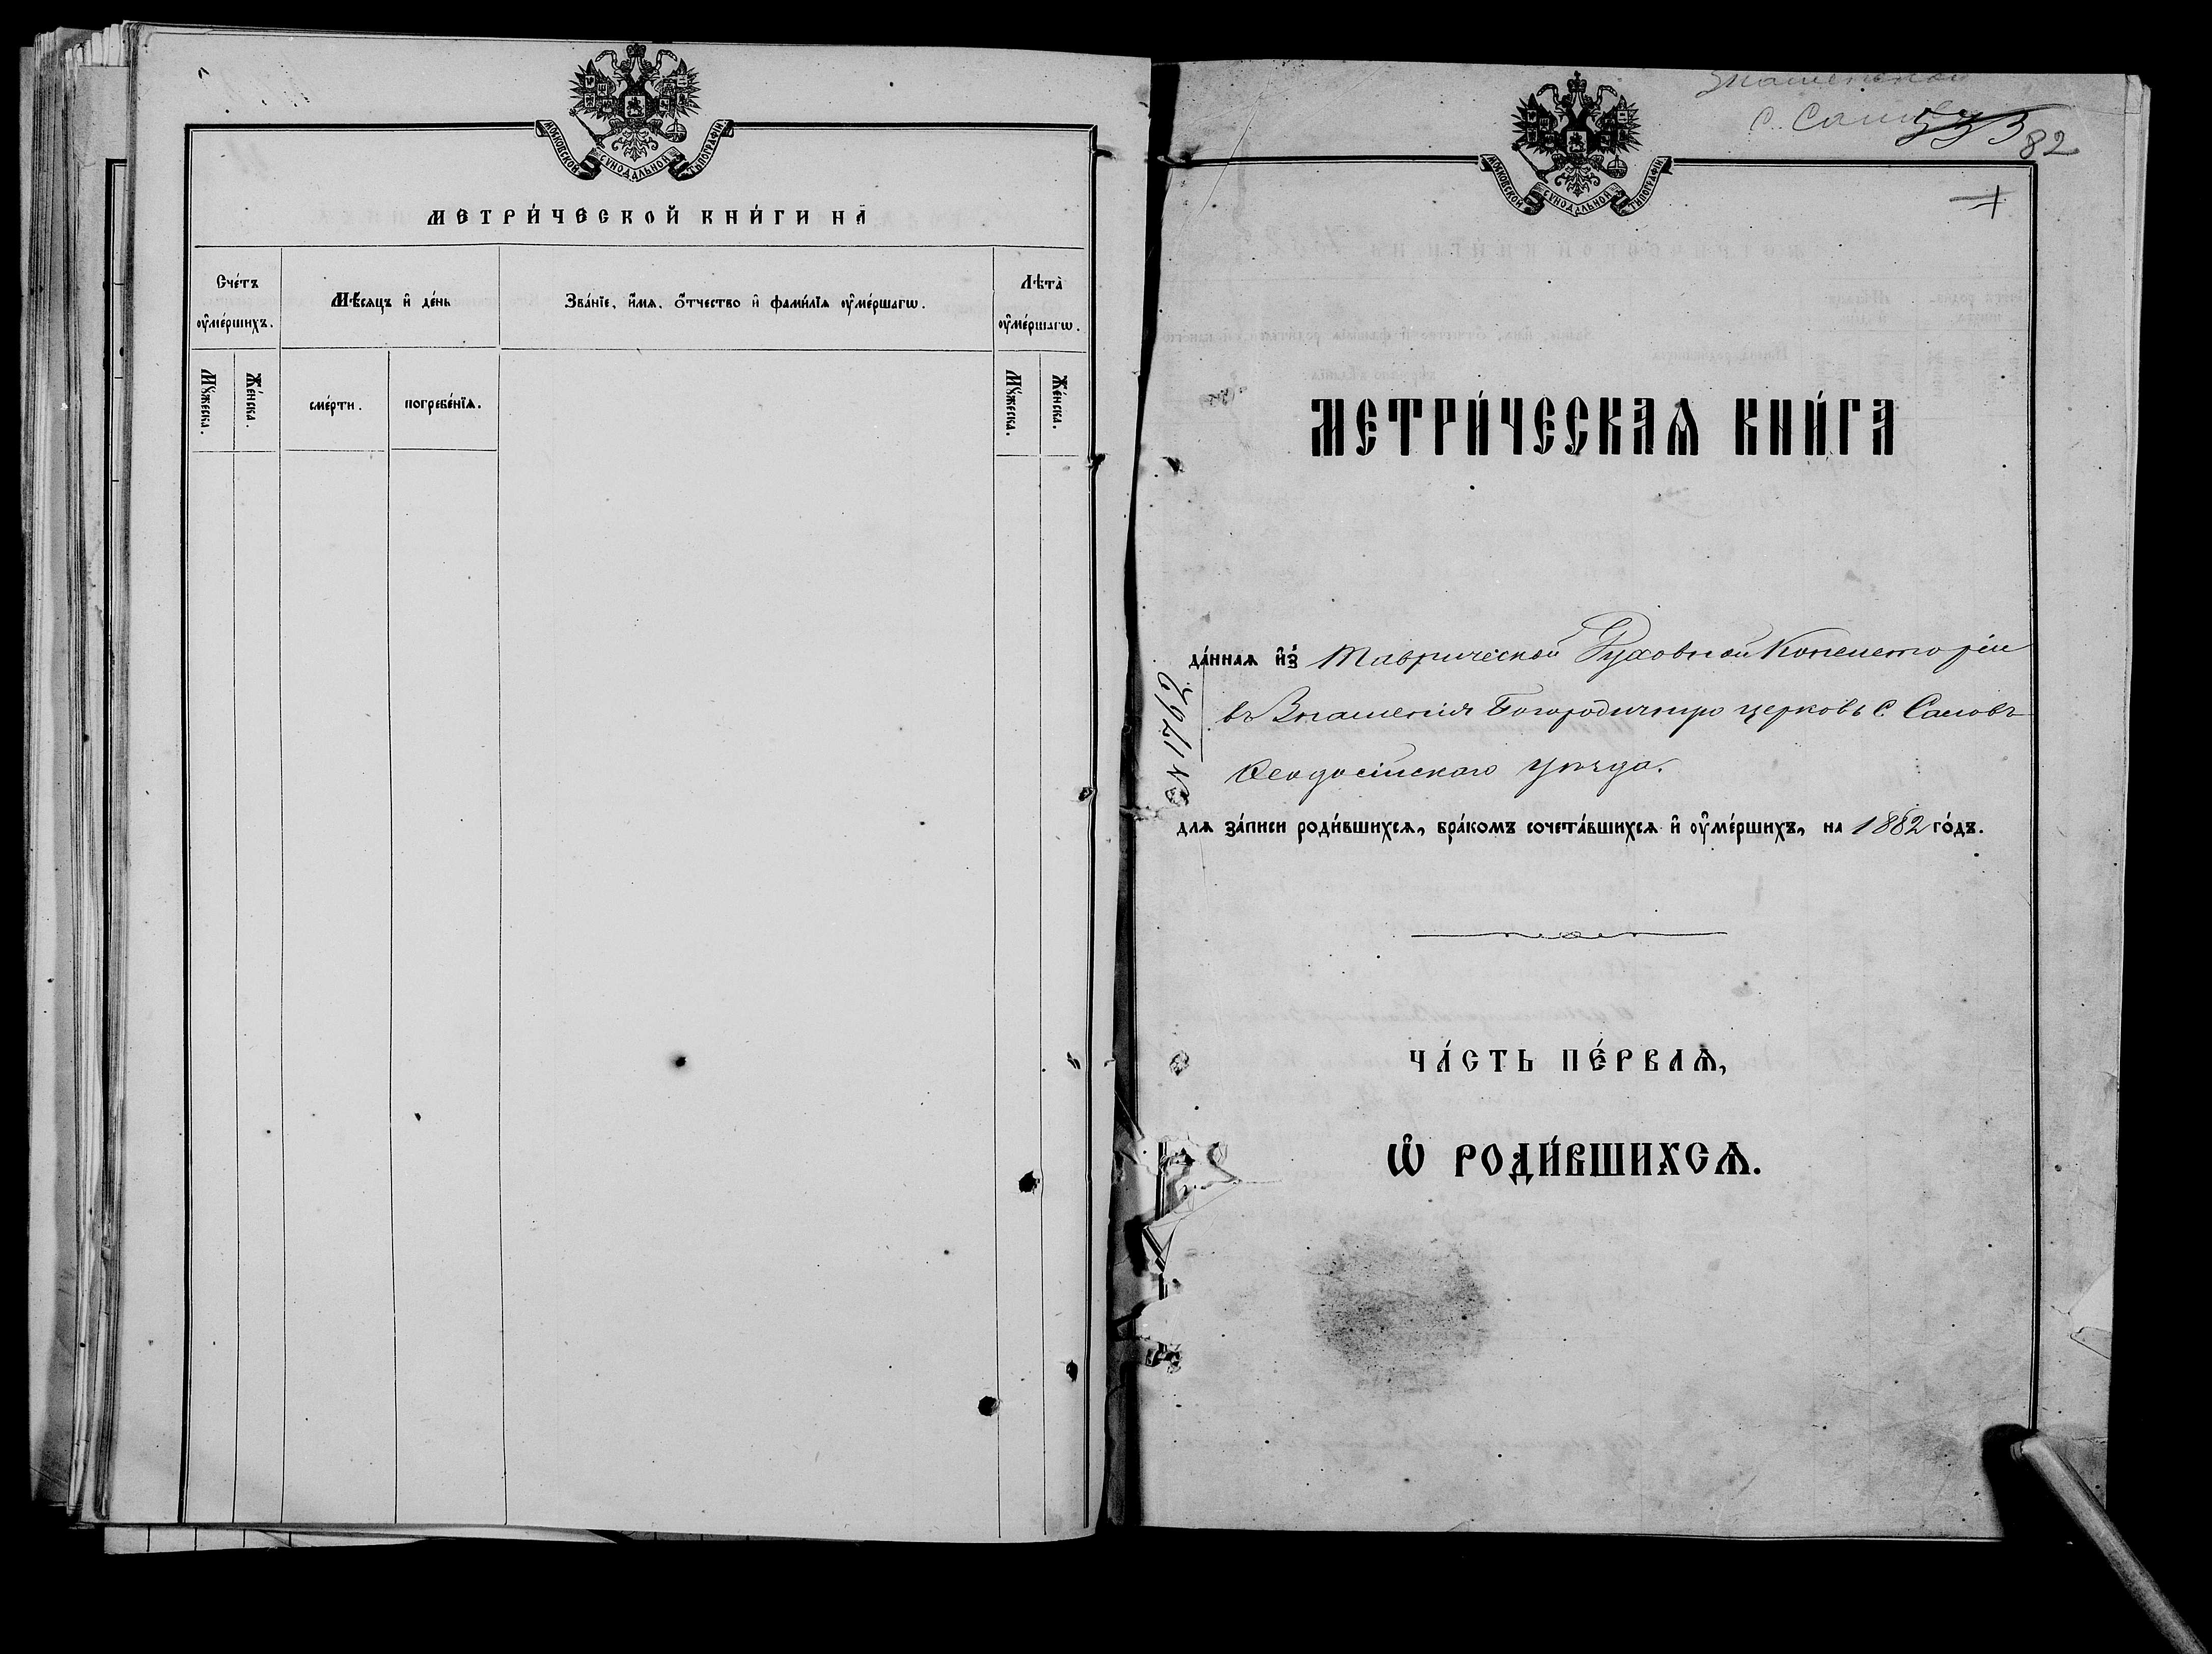 МОСКОВСКОЙ СѴНОДАЛЬНОЙ ТИПОГРАФІИ.
МЕТРИ́ЧЕСКОЙ КНИ́ГИ НА
Сче́тъ ᲂу҆ме́ршихъ.
Мѣ́сяцъ и҆ де́нь
Зва́нїе, и҆́мѧ, ѻ҆́тчество и҆ фами́лїѧ ᲂу҆ме́ршагѡ.
Лѣта̀ ᲂу҆ме́ршагѡ.
Мꙋ́жеска.
Же́нска.
сме́рти.
погребе́нїѧ.
Мꙋ́жеска.
Же́нска.
Знаменской
с.
82
МОСКОВСКОЙ СѴНОДАЛЬНОЙ ТИПОГРАФІИ.
МЕТРИ́ЧЕСКАѦ КНИ́ГА
да́ннаѧ и҆з̾ Таврической Духовной Консисторіи
въ Знаменія Богородичную церковь с.
Ѳеодосійскаго уѣзда.
длѧ за́писи роди́вшихсѧ, бра́комъ сочета́вшихсѧ и҆ ᲂу҆ме́ршихъ, на 1882 го́дъ.
ЧА́СТЬ ПЕ́РВАѦ,
Ѡ҆ РОДИ́ВШИХСѦ.